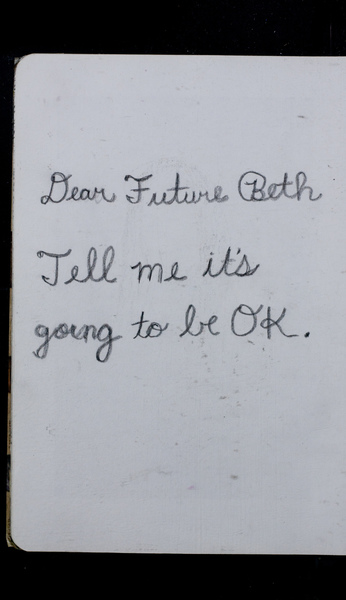 Dear Future Beth
Tell me it's
going to be OK.